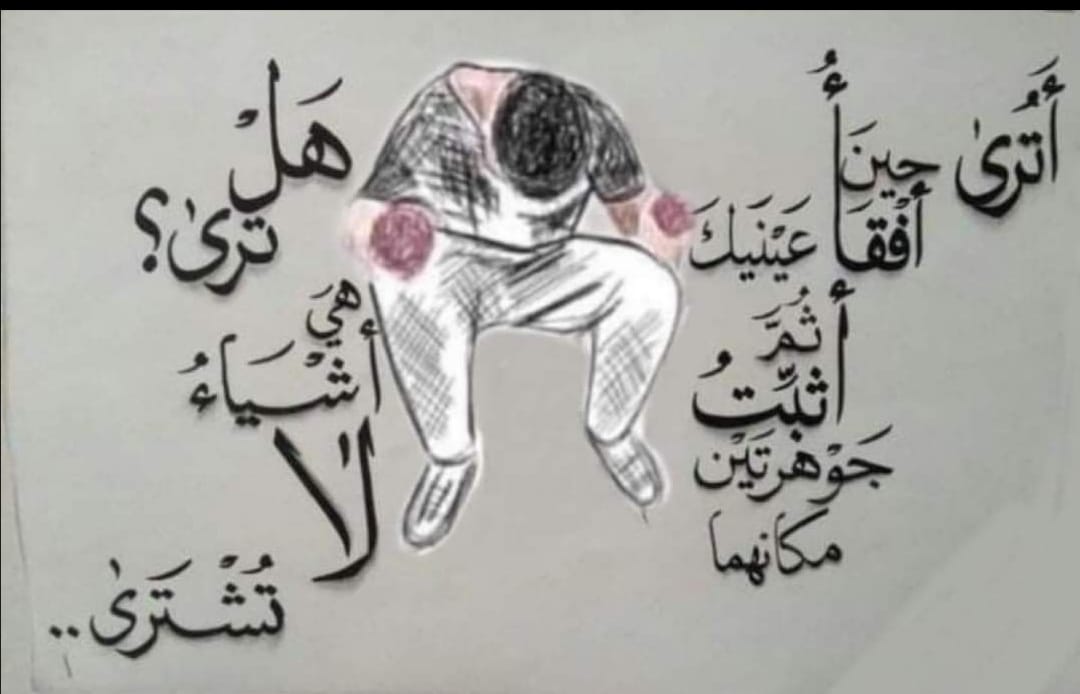 أَتُرىٰ حِينَ
أَفْقَأُ عَيْنَيكَ
ثُمَّ
أثبِّتُ
جَوْهَرتَيْن
مكانهما
هَلْ
ترىٰ؟
هيَ
أشْيَاءُ
لا
تُشْتَرىٰ..